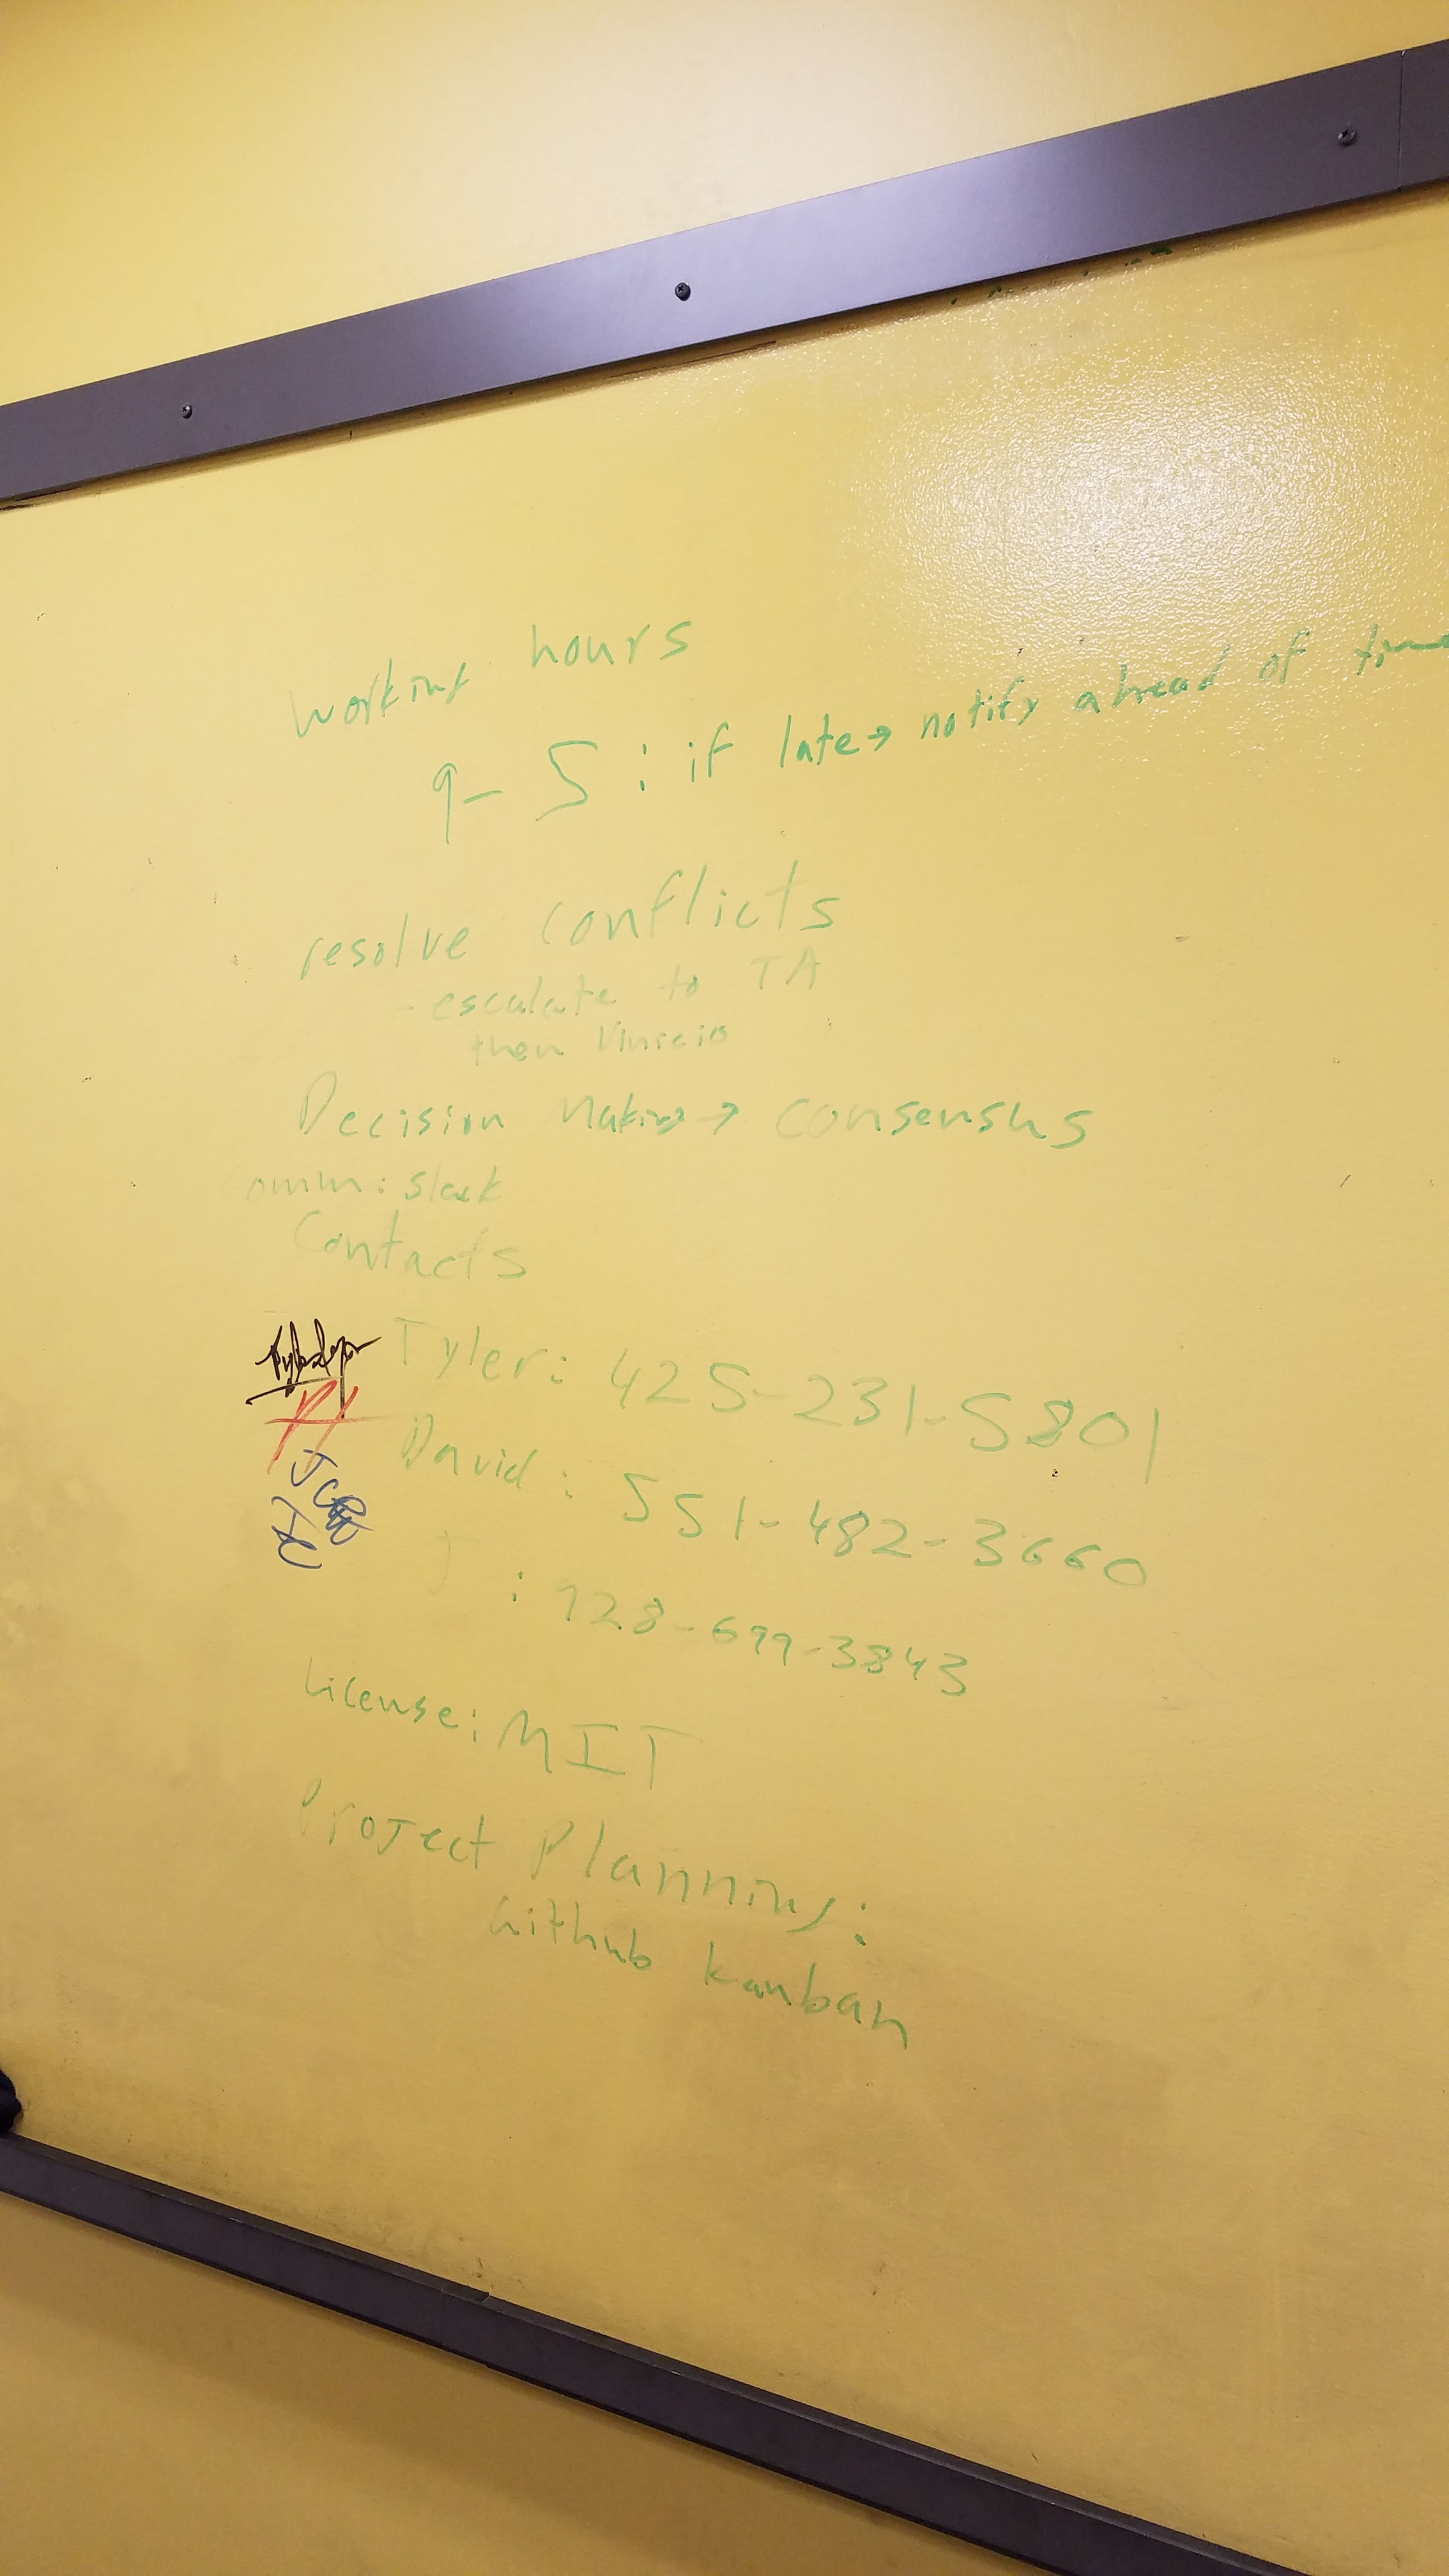 working hours
9-5: if late → notify ahead of time
resolve conflicts
- escalate to TA
then Vinicio
Decision Making → consensus
comm: slack
Contacts
Tyler: 425-231-5801
David: 551-482-3660
J : 928-699-3843
License: MIT
Project Planning:
Github kanban